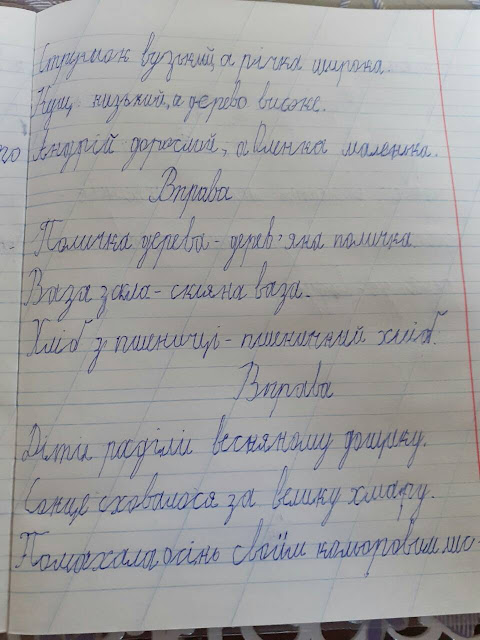 Струмок вузький, а річка широка.
Кущ низький, а дерево високе.
Андрій дорослий, а Оленка маленька.
Вправа
Поличка дерева - дерев'яна поличка.
Ваза з скла - скляна ваза.
Хліб з пшениці - пшеничний хліб.
Вправа
Діти раділи весняному дощику.
Сонце сховалося за велику хмару.
Помахала осінь своїм кольоровим лис-